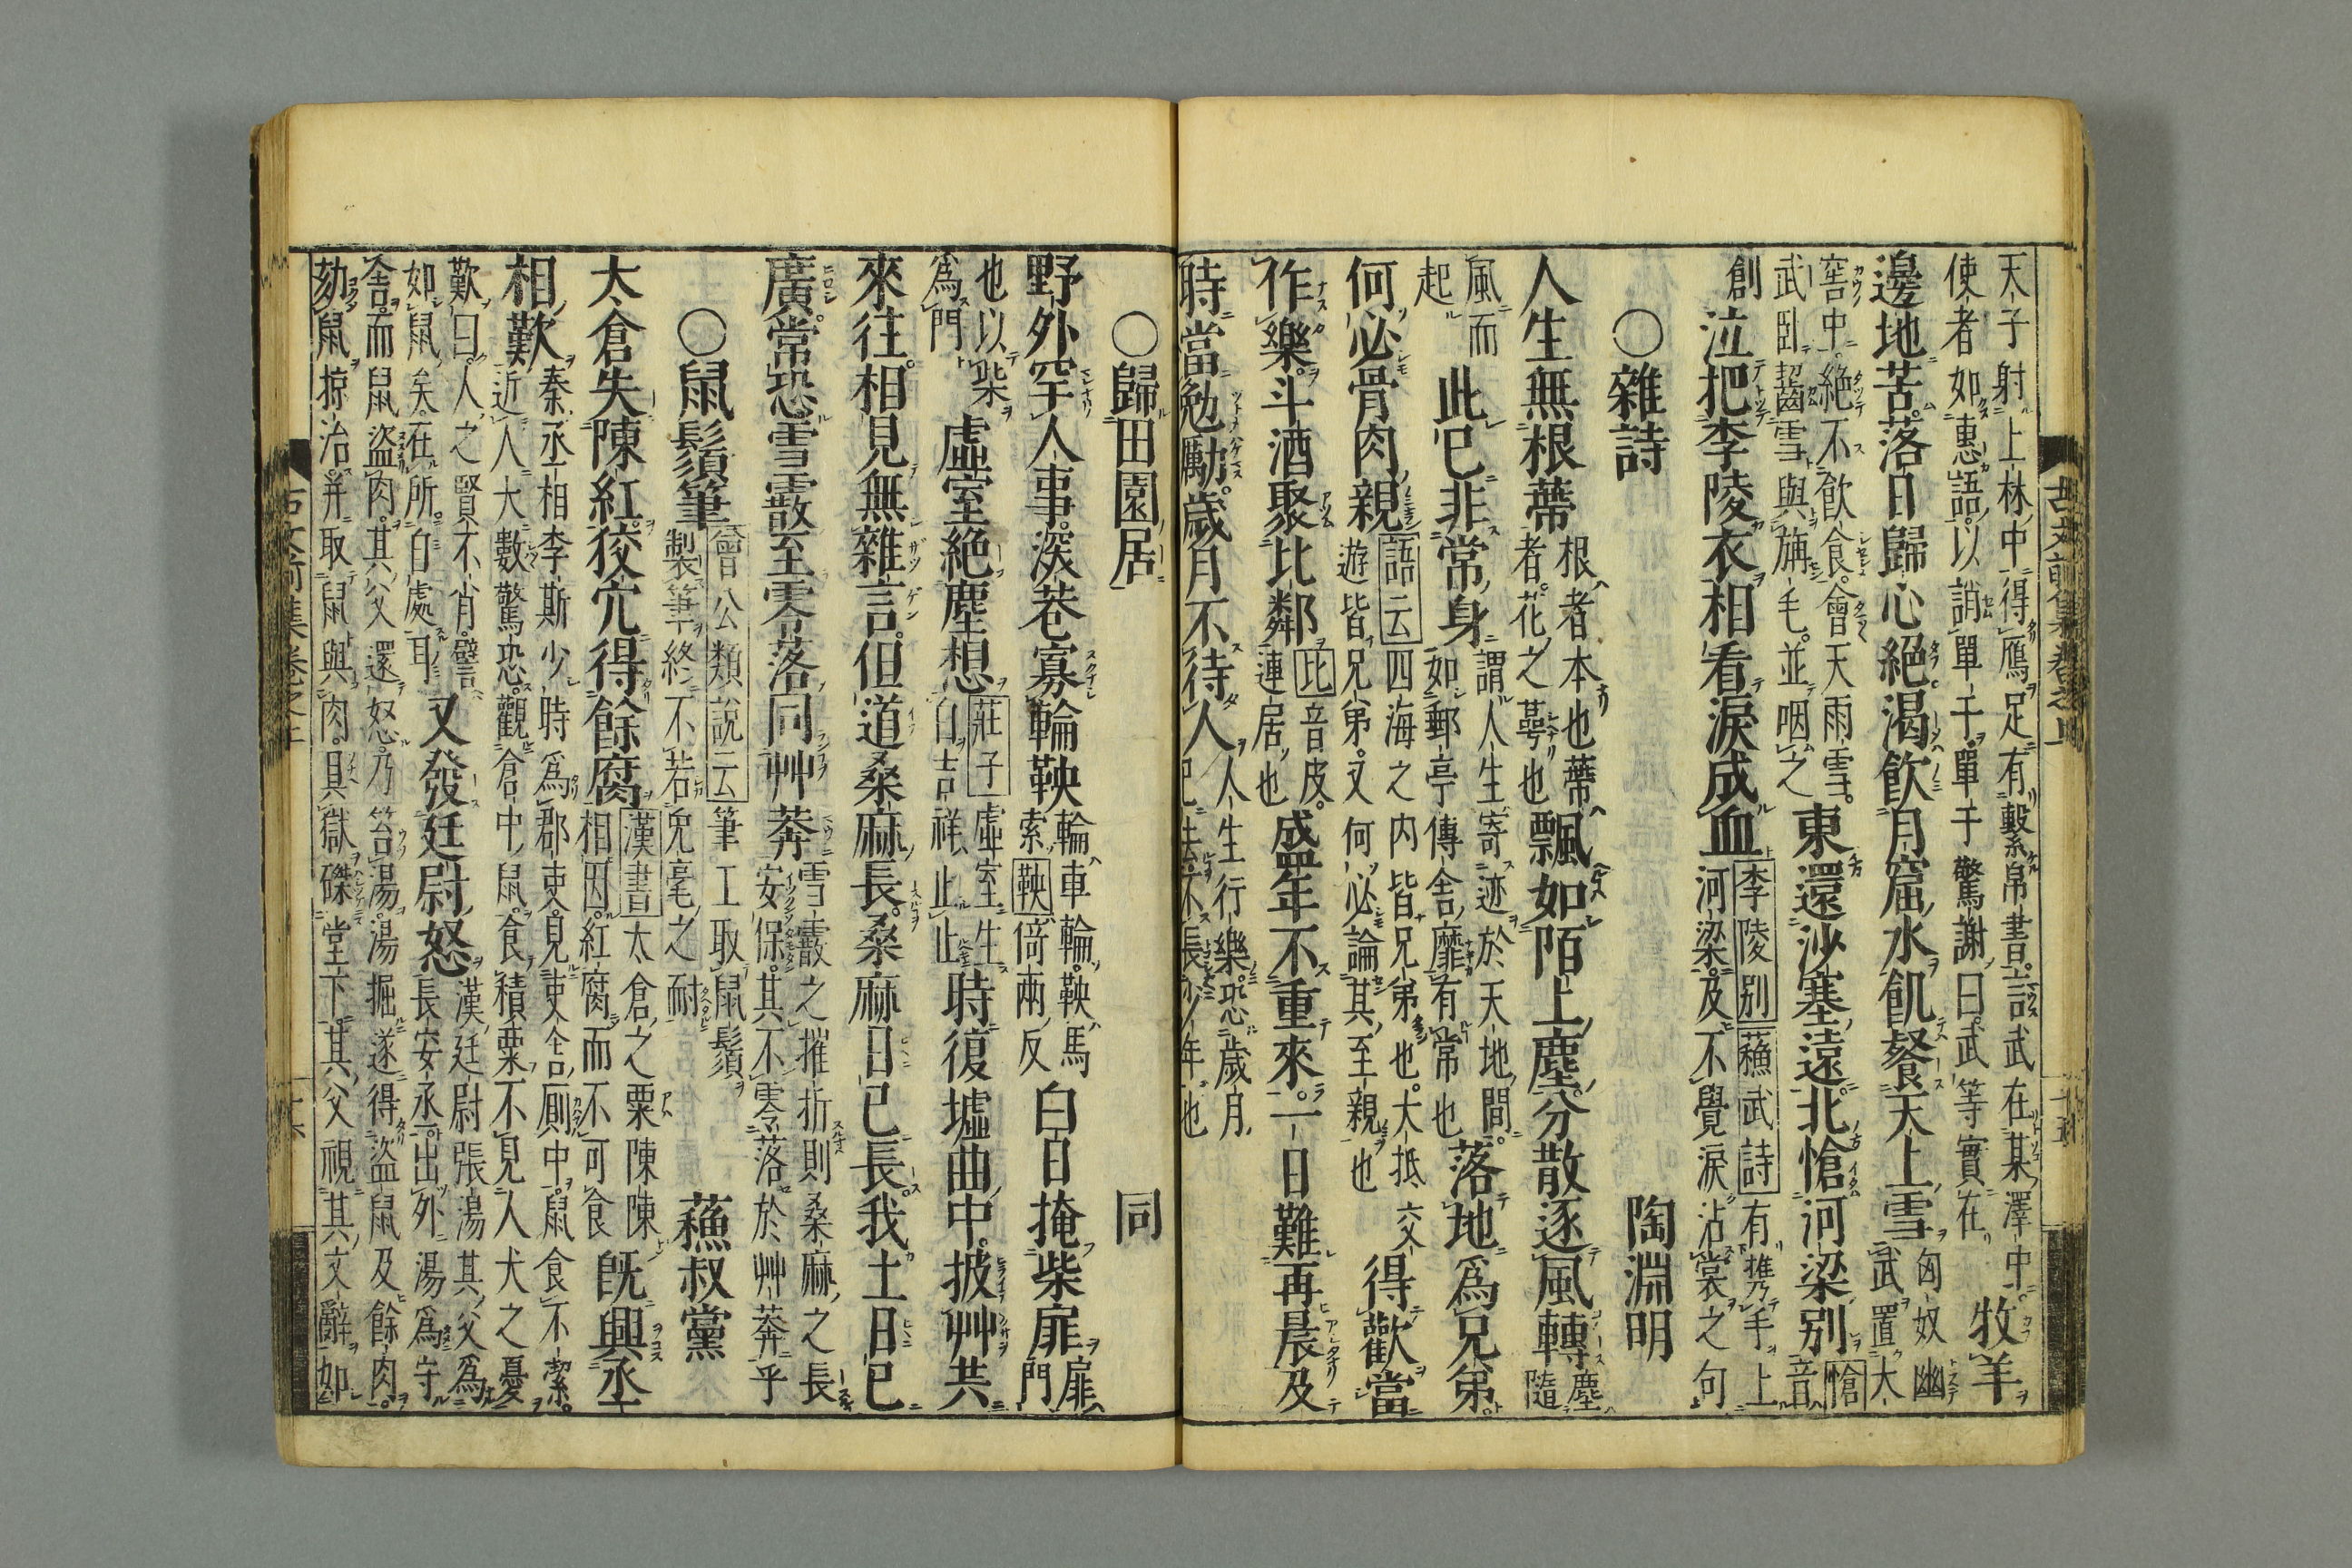 天子射上林中得鴈足有繫帛書言武在某澤中牧羊
使者如惠語以誚單于單于驚謝曰武等實在
邊地苦落日歸心絕渴飲月窟水飢餐天上雪匈奴幽武置大
窖中絕不飲食會天雨雪武臥齧雪與旃毛並咽之東還沙塞遠北愴河梁別愴音
創泣把李陵衣相看淚成血李陵別蘓武詩有携手上河梁及不覺淚沾裳之句
〇雜詩 陶淵明
人生無根蔕根者本也蔕者花之蕚也飄如陌上塵分散逐風轉塵隨
風而起此已非常身謂人生寄迹於天地間如郵亭傳舍靡有常也落地爲兄弟
何必骨肉親語云四海之内皆兄弟也大抵交遊皆兄弟又何必論其至親也得歡當
作樂斗酒聚比鄰比音皮連居也盛年不重來一日難再晨及
時當勉勵歲月不待人人生行樂恐歲月已去不長少年也
〇歸田園居 同
野外罕人事深巷寡輪鞅輪車輪鞅馬索鞅倚兩反白日掩柴扉扉門
也以柴爲門虛室絕塵想莊子虛室生白吉祥止止時復墟曲中披艸共
來往相見無雜言但道桑麻長桑麻日已長我土日已
廣常恐雪霰至零落同艸莽雪霰之摧折則桑麻之長安保其不零落於艸莽乎
〇鼠鬚筆㑹公類說云筆工取鼠鬚製筆終不若兔毫之耐 蘓叔黨
大倉失陳紅狡宂得餘腐漢書太倉之粟陳陳相因紅腐而不可食旣興丞
相歎秦丞相李斯少時爲郡吏見吏舍厠中鼠食不潔近人犬數驚恐觀倉中鼠食積粟不見人犬之憂
歎曰人之賢不肖譬如鼠矣在所自處耳又發廷尉怒漢廷尉張湯其父爲長安丞出外湯爲守
舍而鼠盜肉其父還怒乃笞湯湯掘遂得盜鼠及餘肉
劾鼠掠治并取鼠與肉具獄磔堂下其父視其文辭如